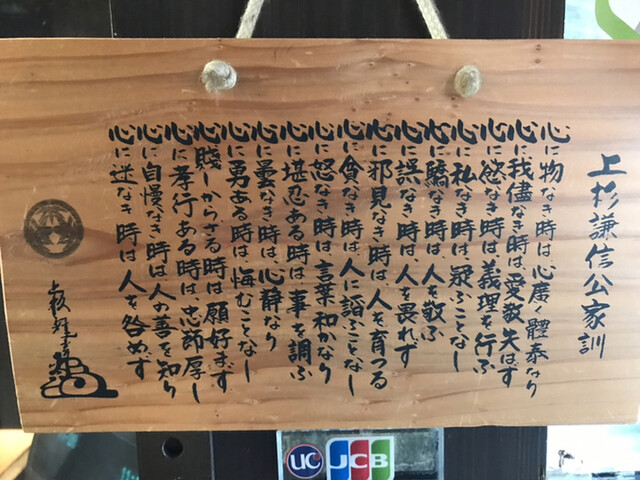 上杉謙信公家訓
心に物なき時は、心廣く體泰なり
心に我儘なき時は、愛敬失はず
心に慾なき時は義理を行ふ
心に私なき時は、疑ふことなし
心に驕なき時は、人を敬ふ
心に誤なき時は人を畏れず
心に邪見なき時は人を育つる
心に貪なき時は、人に諂ふことなし
心に怒なき時は言葉和かなり
心に堪忍ある時は事を調ふ
心に曇なき時は心静なり
心に勇ある時は悔むことなし
心賤しからざる時は願好まず
心に孝行ある時は、忠節厚し
心に自慢なき時は人の善を知り
心に迷なき時は人を咎めず
UC
JCB